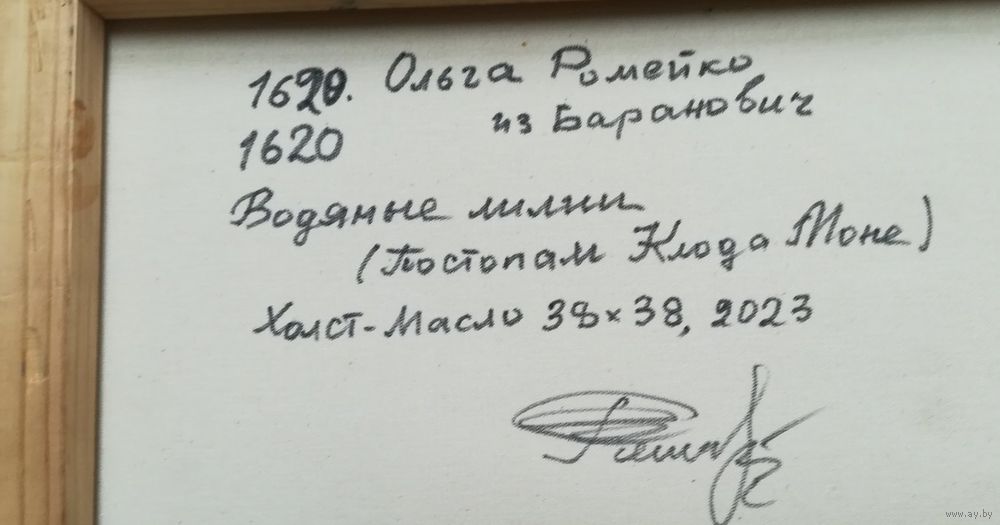 1620. Ольга Ромейко
из Баранович
1620
Водяные лилии
(Постопам Клода Моне)
Холст-Масло 38×38, 2023
www.ay.by